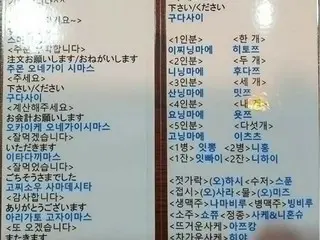 <주문 부탁합니다>
注文お願いします/おねがいします
주몬 오네가이 시마스
<주세요>
下さい/ください
구다사이
<계산해주세요>
お会計お願いします
오카이케 오네가이시마스
<잘먹겠습니다>
いただきます
이타다끼마스
<잘 먹었습니다>
ごちそうさまでした
고찌소우 사마데시타
<감사합니다>
ありがとうございます
아리가토 고자이마스
<또 오겠습니다>
下さい/ください
구다사이
<1인분> <한 개>
이찌닝마에 히토쯔
<2인분> <두 개>
니닝마에 후다쯔
<3인분> <세 개>
산닝마에 밋쯔
<4인분> <네 개>
요닝마에 욧쯔
<5인분> <다섯개>
고닝마에 이츠츠
<1병> 잇뽕 <2병> 니홍
<1잔> 잇빠이 <2잔> 니하이
<젓가락> 하시 <수저> 스푼
<접시> 사라 <물> 미즈
<생맥주> 나마비루 <병맥주> 빙비루
<소주> 쇼쮸 <정종> 사케&니혼슈
<뜨거운사케> 아쯔캉
<차가운사케> 히야